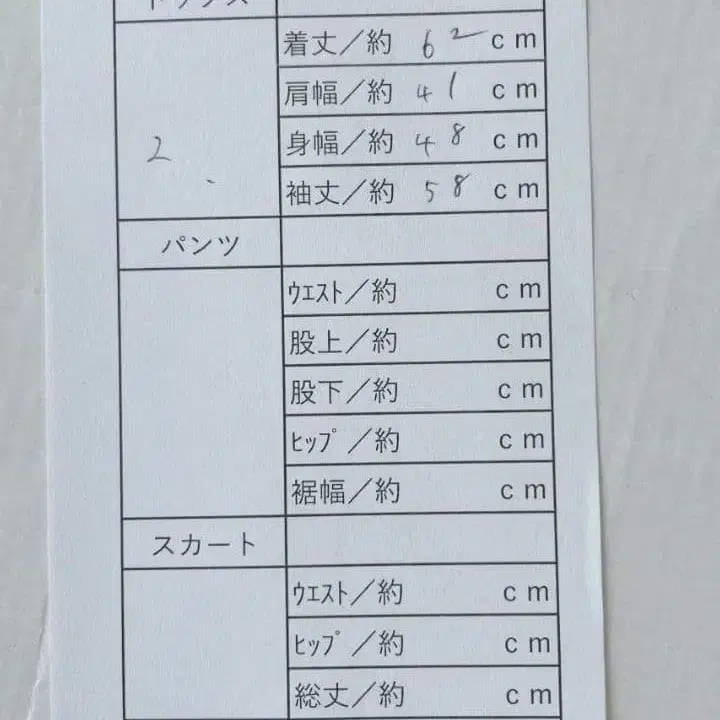 トップス
着丈/約 62 cm
肩幅/約 41 cm
2
身幅/約 48 cm
袖丈/約 58 cm
パンツ
ｳｴｽﾄ/約 cm
股上/約 cm
股下/約 cm
ﾋｯﾌﾟ/約 cm
裾幅/約 cm
スカート
ｳｴｽﾄ/約 cm
ﾋｯﾌﾟ/約 cm
総丈/約 cm